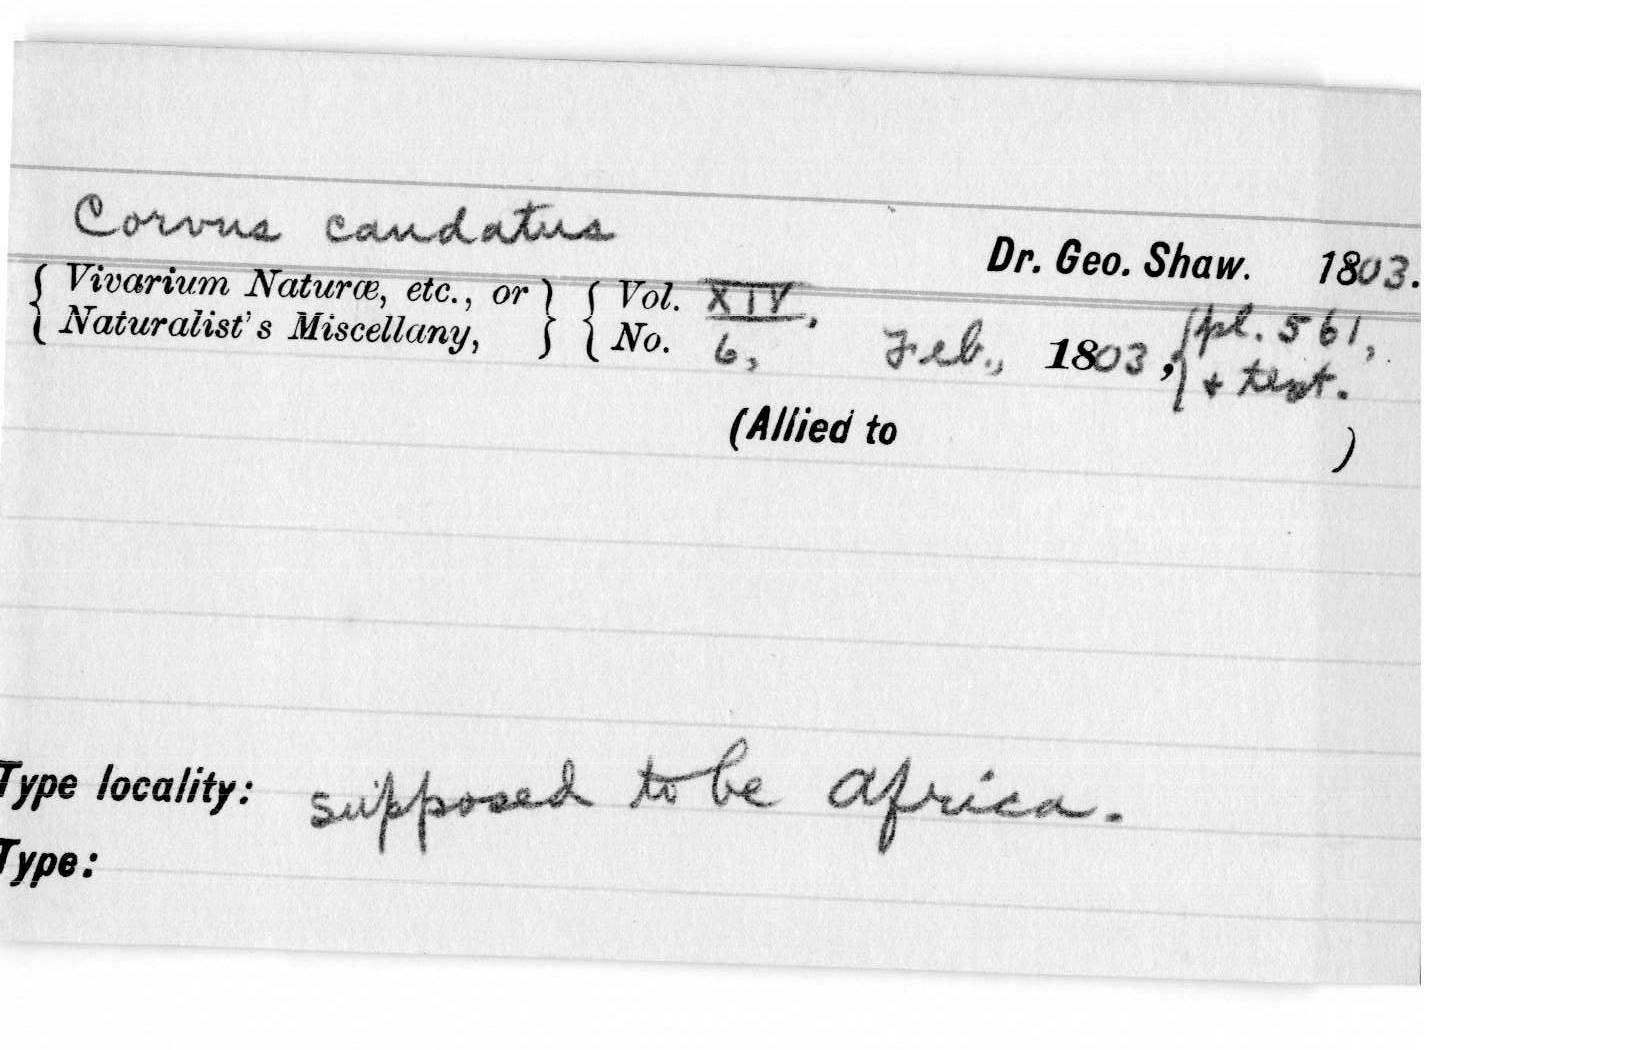 Corvus caudatus
Dr. Geo. Shaw. 1803.
{ Vivarium Naturæ, etc., or } { Vol. XIV,
{ Naturalist's Miscellany, } { No. 6, Feb., 1803, { pl. 561, & text.
(Allied to )
Type locality: supposed to be Africa.
Type: